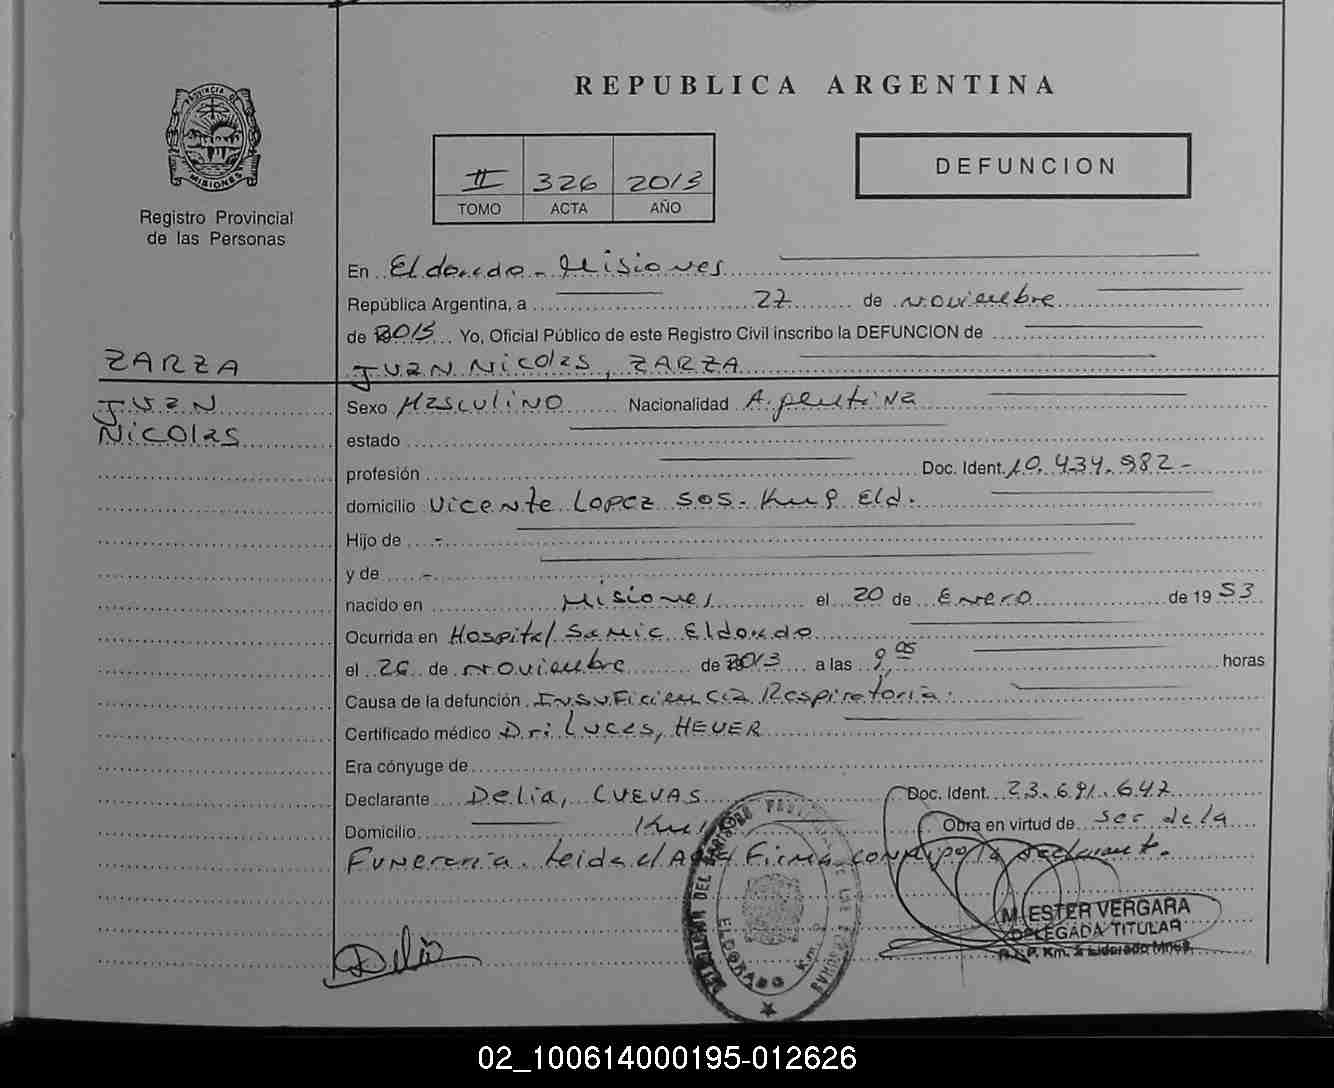 REPUBLICA ARGENTINA
PROVINCIA DE
MISIONES
Registro Provincial
de las Personas
II 326 2013
TOMO ACTA AÑO
DEFUNCION
En Eldorado - Misiones
República Argentina, a 27 de noviembre
de 2013 Yo, Oficial Público de este Registro Civil inscribo la DEFUNCION de
ZARZA
JUAN NICOLAS, ZARZA
JUAN
NICOLAS
Sexo Masculino Nacionalidad Argentina
estado
profesión Doc. Ident. 10.434.982-
domicilio Vicente Lopez 505- Eld.
Hijo de -
y de -
nacido en Misiones el 20 de Enero de 1953
Ocurrida en Hospital Samic Eldorado
el 26 de noviembre de 2013 a las 9,05 horas
Causa de la defunción Insuficiencia Respiratoria.
Certificado médico Dr: Luces, HEUER
Era cónyuge de
Declarante Delia, CUEVAS Doc. Ident. 23.691.647
Domicilio Obra en virtud de Ser de la
Funeraria. Leida el Acta Firma conmigo la declarante.
Delia
ELDORADO Km
M. ESTER VERGARA
DELEGADA TITULAR
02_100614000195-012626